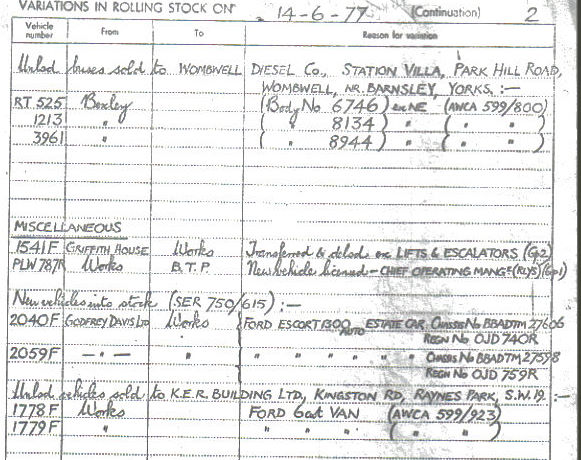 VARIATIONS IN ROLLING STOCK ON 14-6-77 (Continuation) 2
Vehicle number From To Reason for variation
Unlsd buses sold to WOMBWELL DIESEL Co., STATION VILLA, PARK HILL ROAD,
WOMBWELL, NR. BARNSLEY, YORKS. :—
RT 525 Bexley (Body No 6746) ex NE (AWCA 599/800)
1213 " ( " 8134) " ( " " )
3961 " ( " 8944) " ( " " )
MISCELLANEOUS
1541F GRIFFITH HOUSE Works Transferred & delsd ex LIFTS & ESCALATORS (Gp2)
PLW 787R Works B.T.P. New vehicle licensed - CHIEF OPERATING MANGR (RLYS) (Gp1)
New vehicles into stock (SER 750/615) :—
2040F GODFREY DAVIS LTD Works FORD ESCORT 1300 AUTO ESTATE CAR, CHASSIS No BBADTM 27606
REGN No OJD 740R
2059F — " — " " " " " " CHASSIS No BBADTM 27598
REGN No OJD 759R
Unlsd vehicles sold to K.E.R. BUILDING LTD, KINGSTON RD, RAYNES PARK, S.W.19. :—
1778F Works FORD 6cwt VAN (AWCA 599/923)
1779F " " " " ( " " )